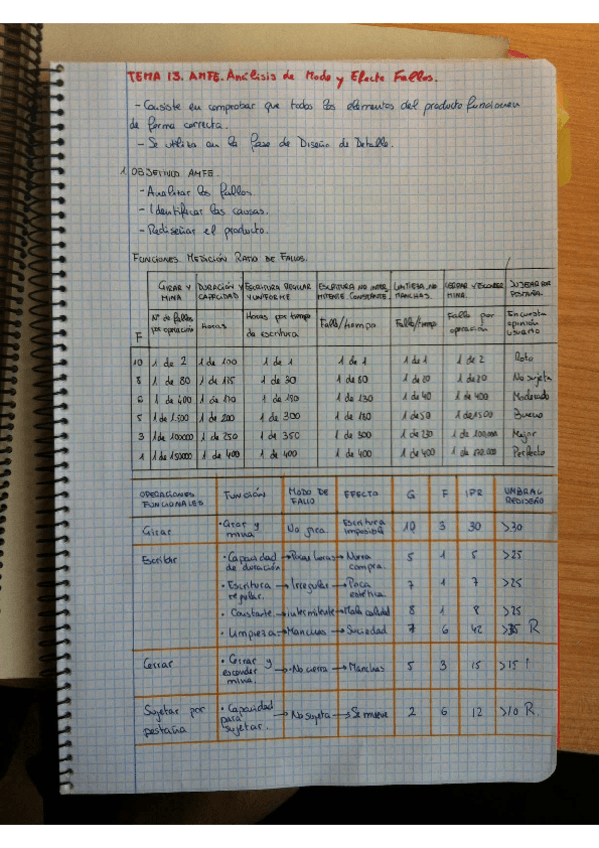 TEMA 13. AMFE. Análisis de Modo y Efecto Fallos.
- Consiste en comprobar que todos los elementos del producto funcionen
de forma correcta.
- Se utiliza en la fase de Diseño de Detalle.
1 OBJETIVO AMFE.
- Analizar los fallos.
- Identificar las causas.
- Rediseñar el producto.
FUNCIONES. MEDICIÓN RATIO DE FALLOS.
GIRAR Y MINA | DURACIÓN Y CAPACIDAD | ESCRITURA REGULAR Y UNIFORME | ESCRITURA NO INTERMITENTE. CONSTANTE. | LIMPIEZA. NO MANCHAS. | CERRAR Y ESCONDER MINA. | SUJETAR POR PESTAÑA.
F | Nº de fallos por operación | Horas | Horas por tiempo de escritura | Fallo/tiempo | Fallo/tiempo | Fallo por operación | Encuesta opinión usuario
10 | 1 de 2 | 1 de 100 | 1 de 1 | 1 de 1 | 1 de 1 | 1 de 2 | Roto
8 | 1 de 80 | 1 de 125 | 1 de 30 | 1 de 60 | 1 de 20 | 1 de 20 | No sujeta
6 | 1 de 400 | 1 de 150 | 1 de 130 | 1 de 40 | 1 de 400 | Moderado
5 | 1 de 1.500 | 1 de 200 | 1 de 300 | 1 de 180 | 1 de 50 | 1 de 1500 | Bueno
3 | 1 de 100000 | 1 de 250 | 1 de 350 | 1 de 300 | 1 de 250 | 1 de 100.000 | Mejor
1 | 1 de 150000 | 1 de 400 | 1 de 400 | 1 de 400 | 1 de 400 | 1 de 150.000 | Perfecto
OPERACIONES FUNCIONALES | FUNCIÓN | MODO DE FALLO | EFECTO | G | F | IPR | UMBRAL REDISEÑO
Girar | • Girar y mina | No gira. | Escritura imposible | 10 | 3 | 30 | >30
Escribir | • Capacidad de duración | → Pocas horas | → Nueva compra. | 5 | 1 | 5 | >25
• Escritura regular. | → Irregular | → Poca estética. | 7 | 1 | 7 | >25
• Constante | → intermitente | → Mala calidad | 8 | 1 | 8 | >25
• Limpieza | → Manchas | → Suciedad | 7 | 6 | 42 | >35 R
Cerrar | • Cerrar y esconder mina. | → No cierra | → Manchas | 5 | 3 | 15 | >15
Sujetar por pestaña | • Capacidad para sujetar. | → No sujeta | → Se mueve | 2 | 6 | 12 | >10 R.